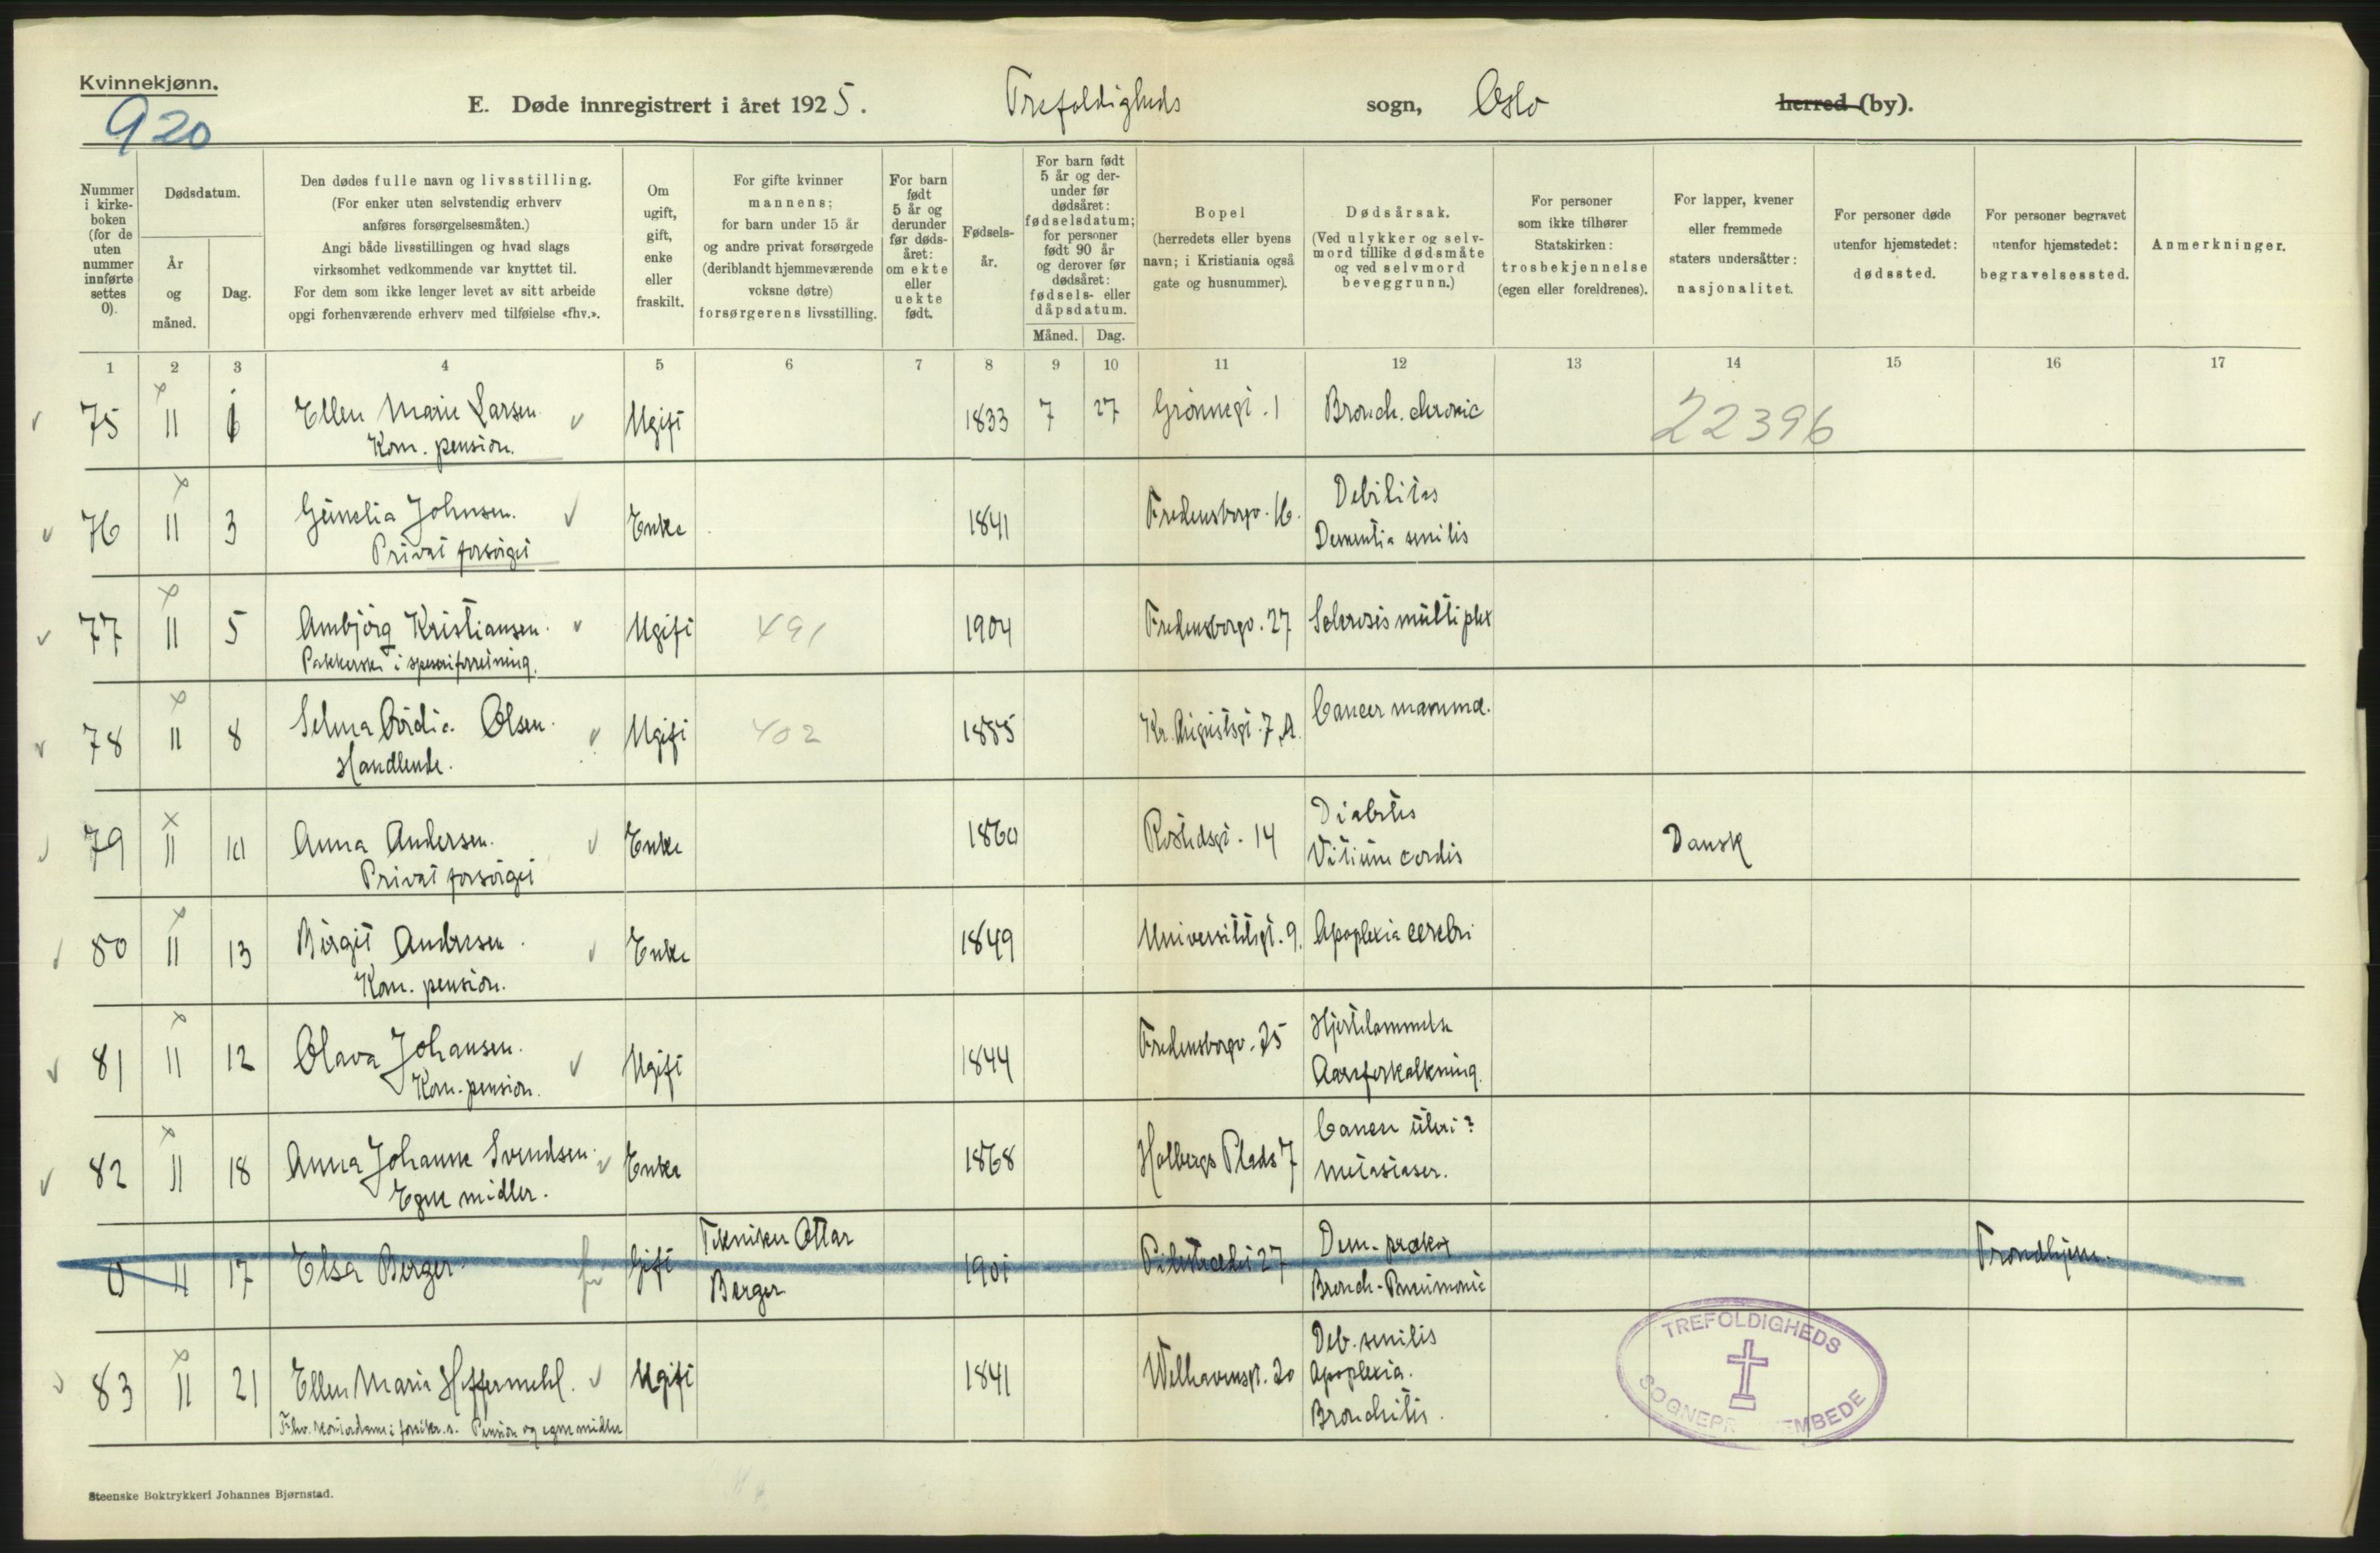 Kvinnekjønn.
920
E. Døde innregistrert i året 1925. Trefoldigheds sogn, Oslo herred (by).
Nummer i kirkeboken (for de uten nummer innførte settes 0).
Dødsdatum.
År og måned.
Dag.
Den dødes fulle navn og livsstilling.
(For enker uten selvstendig erhverv
anføres forsørgelsesmåten.)
Angi både livsstillingen og hvad slags
virksomhet vedkommende var knyttet til.
For dem som ikke lenger levet av sitt arbeide
opgi forhenværende erhverv med tilføielse «fhv.».
Om ugift, gift, enke eller fraskilt.
For gifte kvinner
mannens;
for barn under 15 år
og andre privat forsørgede
(deriblandt hjemmeværende
voksne døtre)
forsørgerens livsstilling.
For barn født 5 år og derunder før dødsåret: om ekte eller uekte født.
Fødselsår.
For barn født 5 år og derunder før dødsåret: fødselsdatum; for personer født 90 år og derover før dødsåret: fødsels- eller dåpsdatum.
Måned. Dag.
Bopel
(herredets eller byens
navn; i Kristiania også
gate og husnummer).
Dødsårsak.
(Ved ulykker og selvmord tillike dødsmåte
og ved selvmord
beveggrunn.)
For personer
som ikke tilhører
Statskirken:
trosbekjennelse
(egen eller foreldrenes).
For lapper, kvener
eller fremmede
staters undersåtter:
nasjonalitet.
For personer døde
utenfor hjemstedet:
dødssted.
For personer begravet
utenfor hjemstedet:
begravelsessted.
Anmerkninger.
1 2 3 4 5 6 7 8 9 10 11 12 13 14 15 16 17
75 II 6 Ellen Marie Larsen Ugift 1833 7 27 Grönnegt. 1 Bronch. chronic 22396
Kom. pension.
76 II 3 Gunelia Johnsen. Enke 1841 Fredensborgv. 16. Debilitas
Privat forsörget Dementia senilis
77 II 5 Ambjörg Kristiansen. Ugift 491 1904 Fredensborgv. 27 Sclerosis multiplex
Pakkerske i
78 II 8 Selma Olsen. Ugift 402 1885 Kr. Augustsgt. 7 A. Cancer mammæ.
Handlende.
79 II 10 Anna Andersen. Enke 1860 14 Diabetes
Privat forsörget Vitium cordis Dansk
80 II 13 Birgit Andresen. Enke 1849 Universitetsgt. 9. Apoplexia cerebri
Kom. pension.
81 II 12 Olava Johansen. Ugift 1844 Fredensborgv. 25 Hjertelammelse
Kom. pension. Aareforkalkning.
82 II 18 Anna Johanne Svendsen. Enke 1868 Holbergs Plads 7 Cancer uteri?
Egne midler. metastaser.
0 II 17 Elsa Berger Gift Tekniker Ottar 1901 Pilestrædet 27 Dem. præcox Trondhjem.
Berger Bronch-Pneumonie
83 II 21 Ellen Marie Heffermehl. Ugift 1841 Welhavensgt. 20 Deb. senilis
Apoplexia.
Fhv. i Pension og egne midler Bronchitis.
TREFOLDIGHEDS
SOGNEPR EMBEDE
Steenske Boktrykkeri Johannes Bjørnstad.